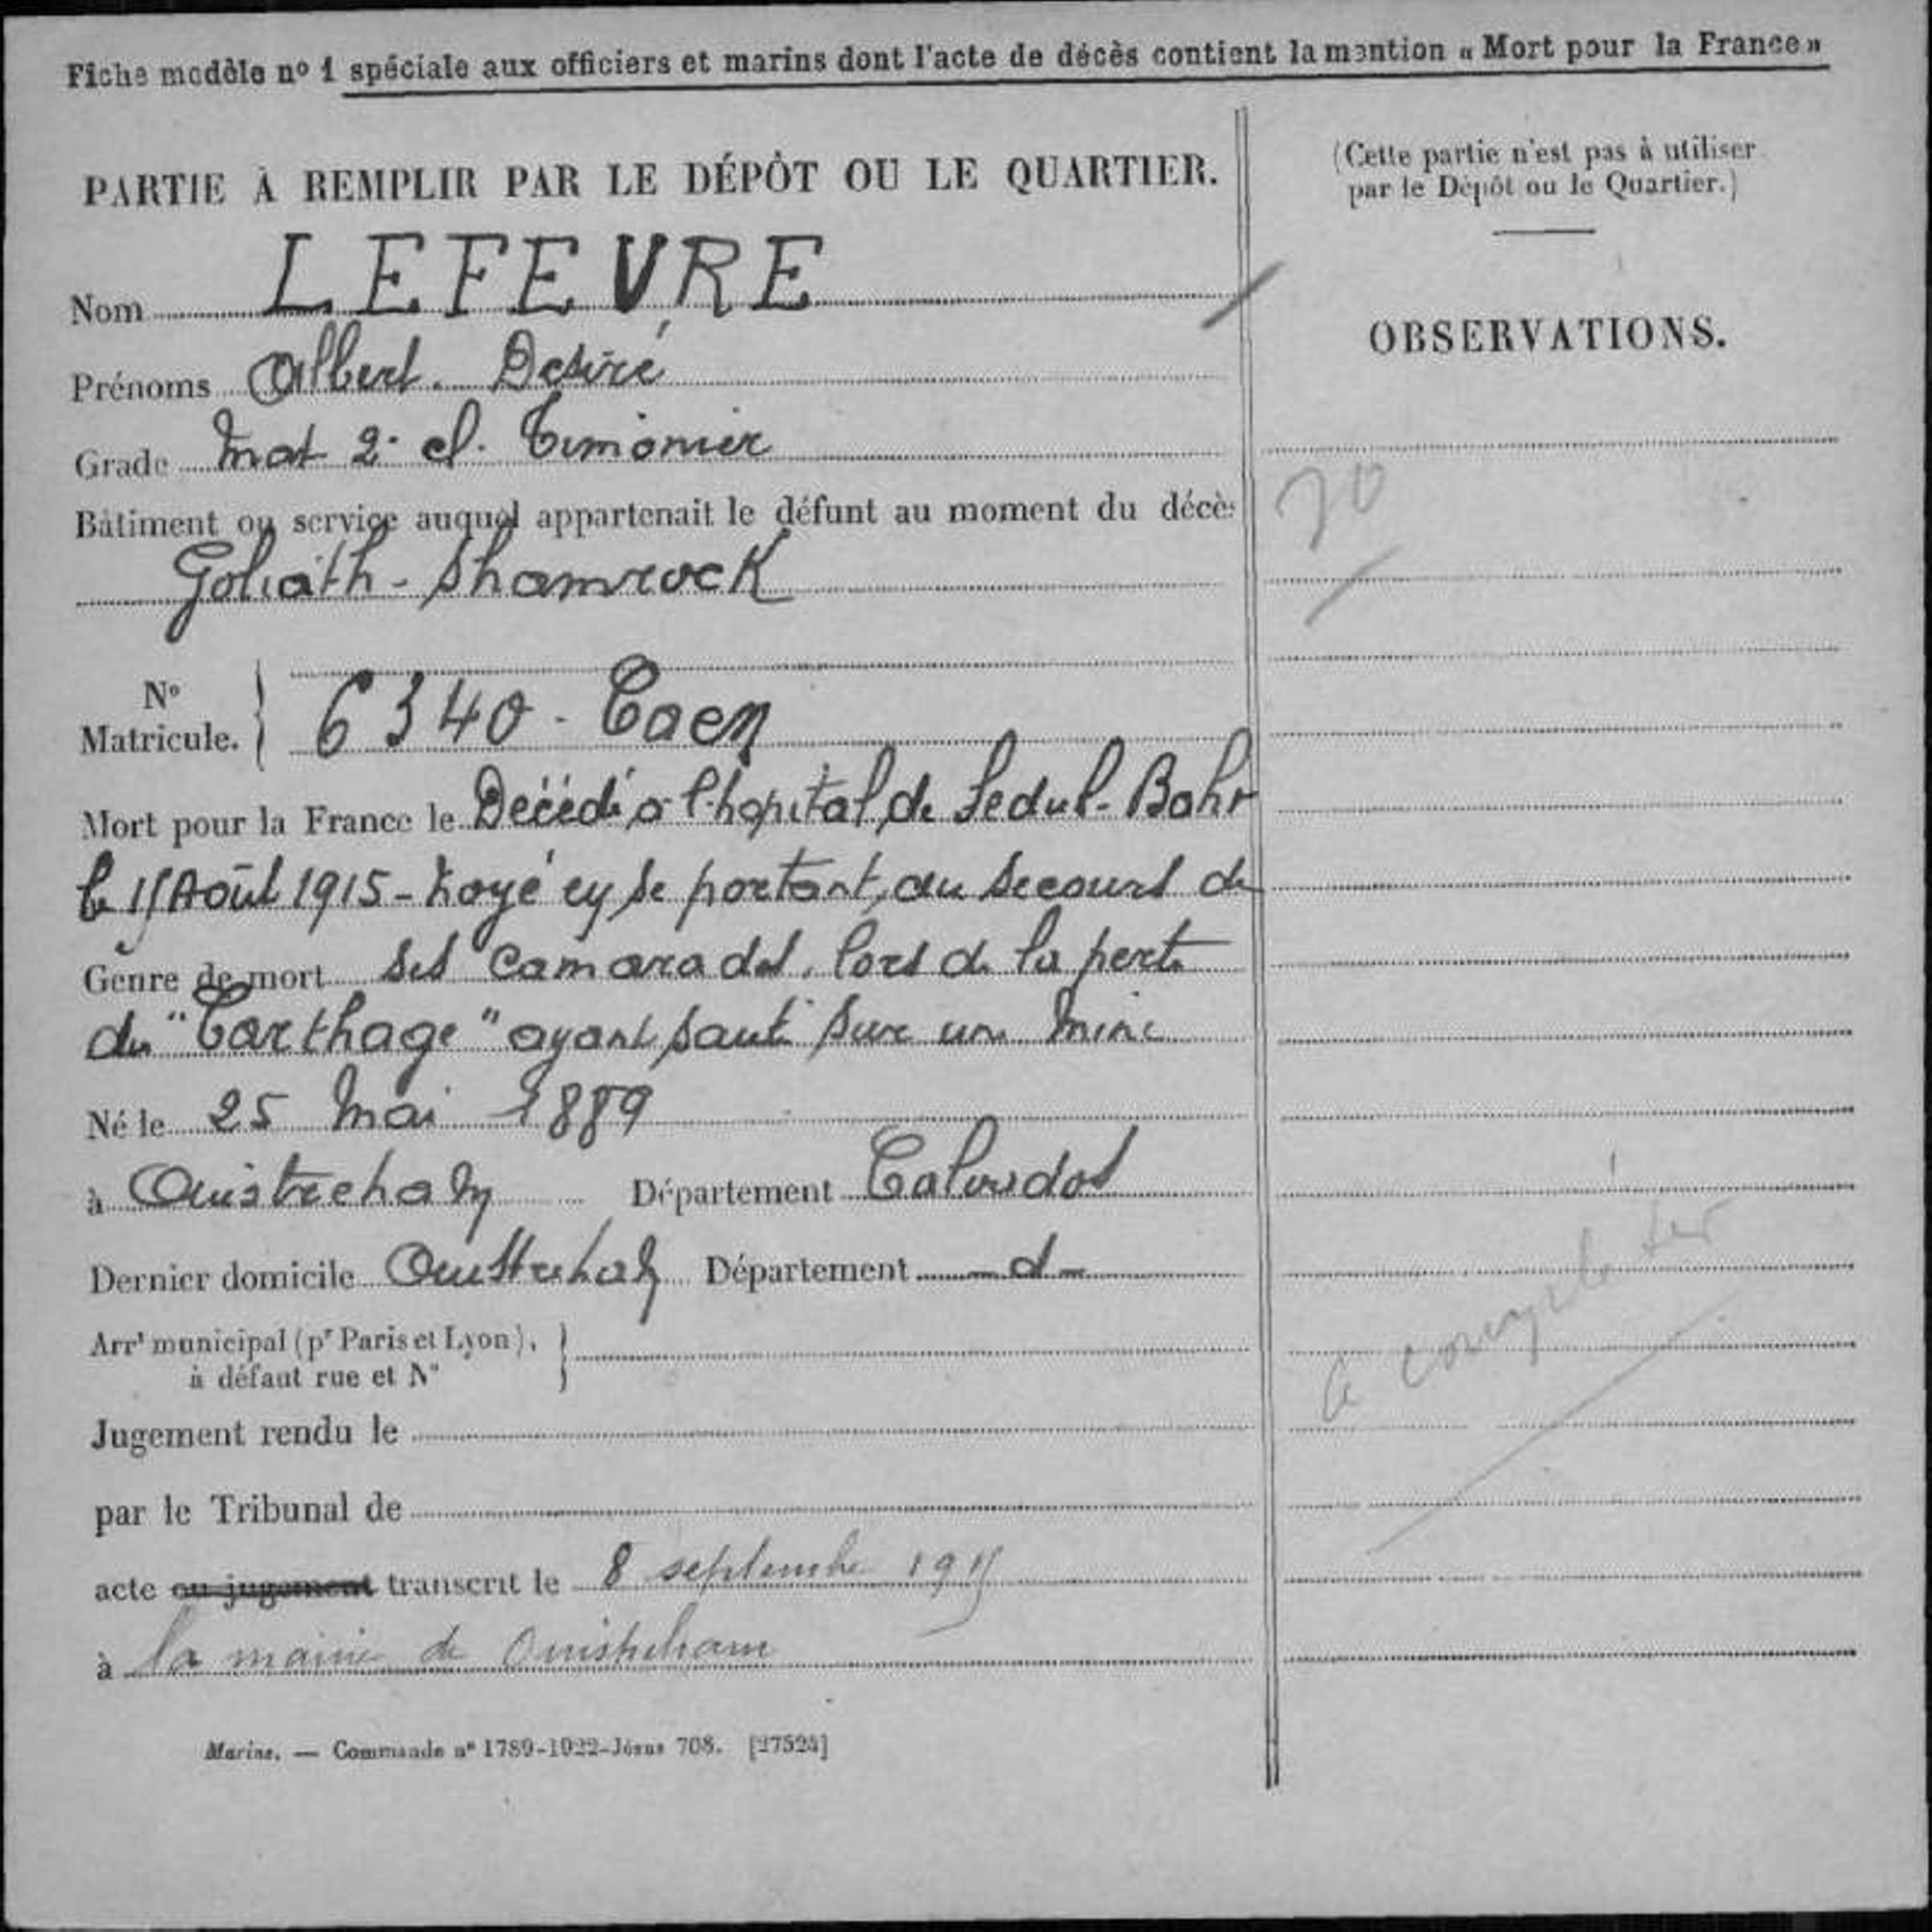 Fiche modèle nº 1 spéciale aux officiers et marins dont l'acte de décès contient la mention « Mort pour la France »
PARTIE À REMPLIR PAR LE DÉPÔT OU LE QUARTIER.
Nom LEFEVRE
Prénoms Albert. Desiré
Grade Mat 2e cl. Timonier
Bâtiment ou service auquel appartenait le défunt au moment du décès
Goliath - Shamrock
Nº
Matricule. } 6340 - Caen
Mort pour la France le Décédé à l'hopital de Sedul-Bahr
le Août 1915 - Noyé en se portant au secours de
Genre de mort ses camarades. lors de la perte
du "Carthage" ayant sauté sur une mine
Né le 25 Mai 1889
à Ouistreham Département Calvados
Dernier domicile Ouistreham Département - d -
Arrt municipal (pr Paris et Lyon), }
à défaut rue et Nº
Jugement rendu le
par le Tribunal de
acte ou jugement transcrit le 8 septembre 1915
à la mairie de Ouistreham
Marine. — Commande nº 1789-1922-Jésus 708. [27524]
(Cette partie n'est pas à utiliser
par le Dépôt ou le Quartier.)
OBSERVATIONS.
70
à compléter